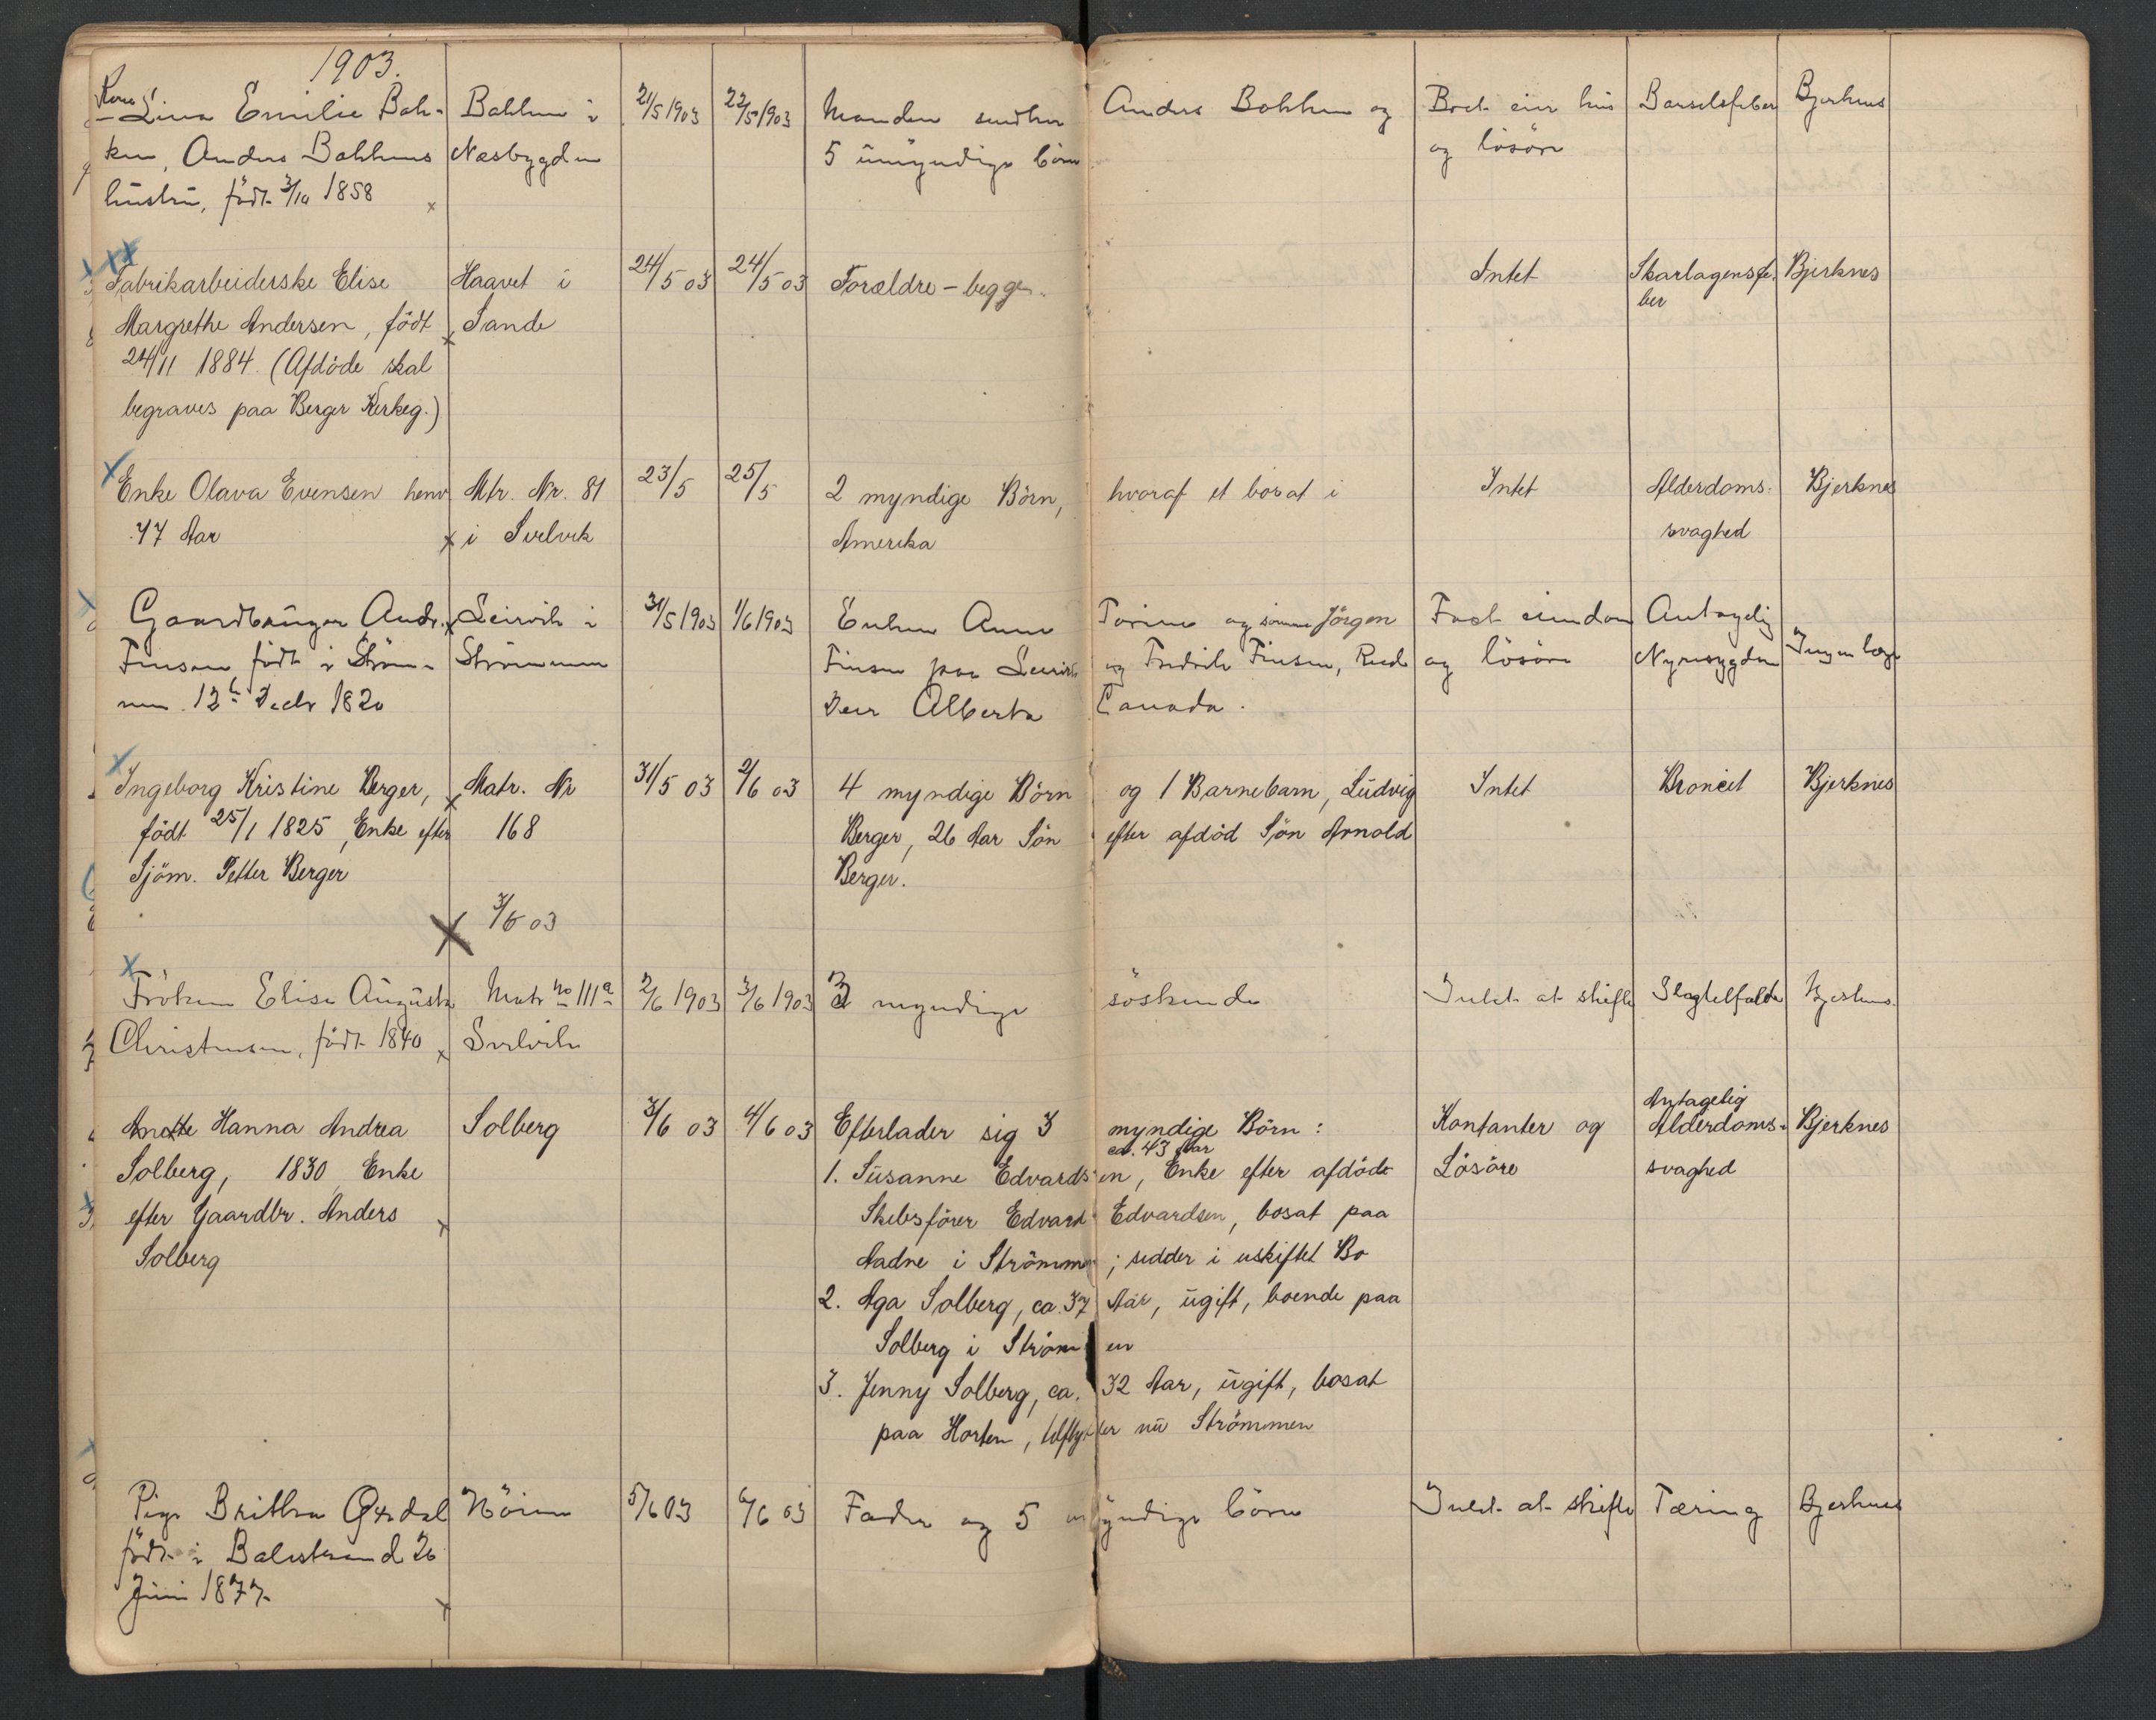 1903.
Kone
Lina Emilie Bak- Bakken i 21/5 1903 22/5 1903 Manden Anders Bakken og Boet eier hus Barselsfeber Bjerknes
ken, Anders Bakkens Næsbygden 5 umyndige börn og lösöre
hustru, födt 3/10 1858 x
Fabrikarbeiderske Elise Haavet i 24/5 03 24/5 03 Forældre - begge. Intet Skarlagensfe- Bjerknes
Margrethe Andersen, födt x Sande ber
24/11 1884. (Afdöde skal
begraves paa Berger Kirkeg.)
Enke Olava Evensen henv. Mtr. Nr. 81 23/5 25/5 2 myndige Börn, hvoraf et bosat i Intet Alderdoms- Bjerknes
77 Aar x i Svelvik Amerika svaghed
Gaardbruger Andr. x Leirvik i 31/5 1903 1/6 1903 Enken Anne Torine og sönne Jörgen Fast eiendom Antagelig Ingen læge
Finsen födt i Ström- Strömmen Finsen paa Leirvik og Fredrik Finsen, Red og lösöre Nyresygdom
men 12te Decbr 1820 Deer Alberta Canada.
Ingeborg Kristine Berger, x Matr. Nr 31/5 03 2/6 03 4 myndige Börn og 1 Barnebarn, Ludvig Intet Broncit Bjerknes
födt 25/1 1825, Enke efter 168 Berger, 26 Aar Sön efter afdöd Sön Arnold
Sjöm. Petter Berger Berger.
x 3/6 03
Fröken Elise Augusta Matr No 111a 2/6 1903 3/6 1903 3 myndige söskende Intet at skifte Slagtilfælde Bjerknes
Christensen, födt 1840 x Svelvik
Anette Hanna Andrea Solberg 3/6 03 4/6 03 Efterlader sig 3 myndige Börn: Kontanter og Antagelig Alderdoms- Bjerknes
Solberg, 1830 Enke 1. Susanne Edvardsen, ca. 43 Aar Enke efter afdöde Lösöre svaghed
efter Gaardbr. Anders x Skibsförer Edvard Edvardsen, bosat paa
Solberg Aadne i Strömmen; sidder i uskiftet Bo
2. Aga Solberg, ca. 37 Aar, ugift, boende paa
Solberg i Strömmen
3. Jenny Solberg, ca. 32 Aar, ugift, bosat
paa Horten, tilflytter nu Strömmen
Pige Brithe Nöien 5/6 03 6/6 03 Fader og 5 myndige börn Intet at skifte Tæring Bjerknes
födt i Balestrand 26
Juni 1877. x